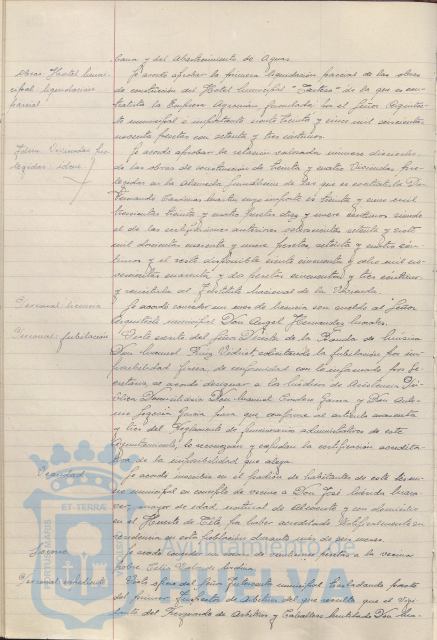 bana y del Abastecimiento de Aguas.
Obras Hotel muni-
cipal liquidación
parcial
Se acordó aprobar la primera liquidación parcial de las obras
de construcción del Hotel municipal "Tartessos" de la que es con-
tratista la Empresa Agromán formulada por el Señor Arquitec-
to municipal é importante ciento treinta y cinco mil seiscientas
noventa pesetas con setenta y tres céntimos.
Idem Viviendas Pro-
tegidas: idem
Se acordó aprobar la relación valorada número dieciocho
de las obras de construcción de treinta y cuatro Viviendas Pro-
tegidas en la Alameda Sundheim de las que es contratista Don
Fernando
Martín cuyo importe es treinta y cinco mil
treinta y cuatro pesetas diez y nueve céntimos siendo
el de las certificaciones anteriores setecientas setenta y
mil doscientas cuarenta y nueve pesetas, setenta y cuatro cén-
timos y el resto disponible ciento cincuenta y ocho mil
cuarenta y dos pesetas cincuenta y tres céntimos
y remitirla al Instituto Nacional de la Vivienda.
Personal licencia
Se acordó conceder un mes de licencia con sueldo al Señor
Arquitecto municipal Don Angel Hernandez
Personal jubilación
Visto escrito del Señor Director de la Banda de Música
Don Manuel Ruiz Vidriet, solicitando la jubilación por im-
posibilidad física, de conformidad con lo informado por Se-
cretaría, se acordó designar a los médicos de Asistencia Pú-
blica Domiciliaria Don Manuel Cordero García y Don Anto-
nio Segovia García para que conforme al artículo cuarenta
y tres del Reglamento de funcionarios administrativos de este
Ayuntamiento, le reconozcan y expidan la certificación acredita-
tiva de la imposibilidad que alega.
Vecindad
Se acordó inscribir en el padrón de habitantes de este térmi-
no municipal en concepto de vecino a Don José
mayor de edad natural de Alicante y con domicilio
en el Huerto de Tila, por haber acreditado
residencia en esta población durante más de seis meses.
Socorro
Se acordó conceder un socorro de veinticinco pesetas a la vecina
pobre
Personal expediente
Visto oficio del Señor Interventor municipal trasladando parte
del primer Inspector de Arbitrios del que resulta que el Vigi-
lante del Resguardo de Arbitrios y Caballero Mutilado Don
PORTUS MARIS
ET TERRAE
Ayuntamiento de
HUELVA